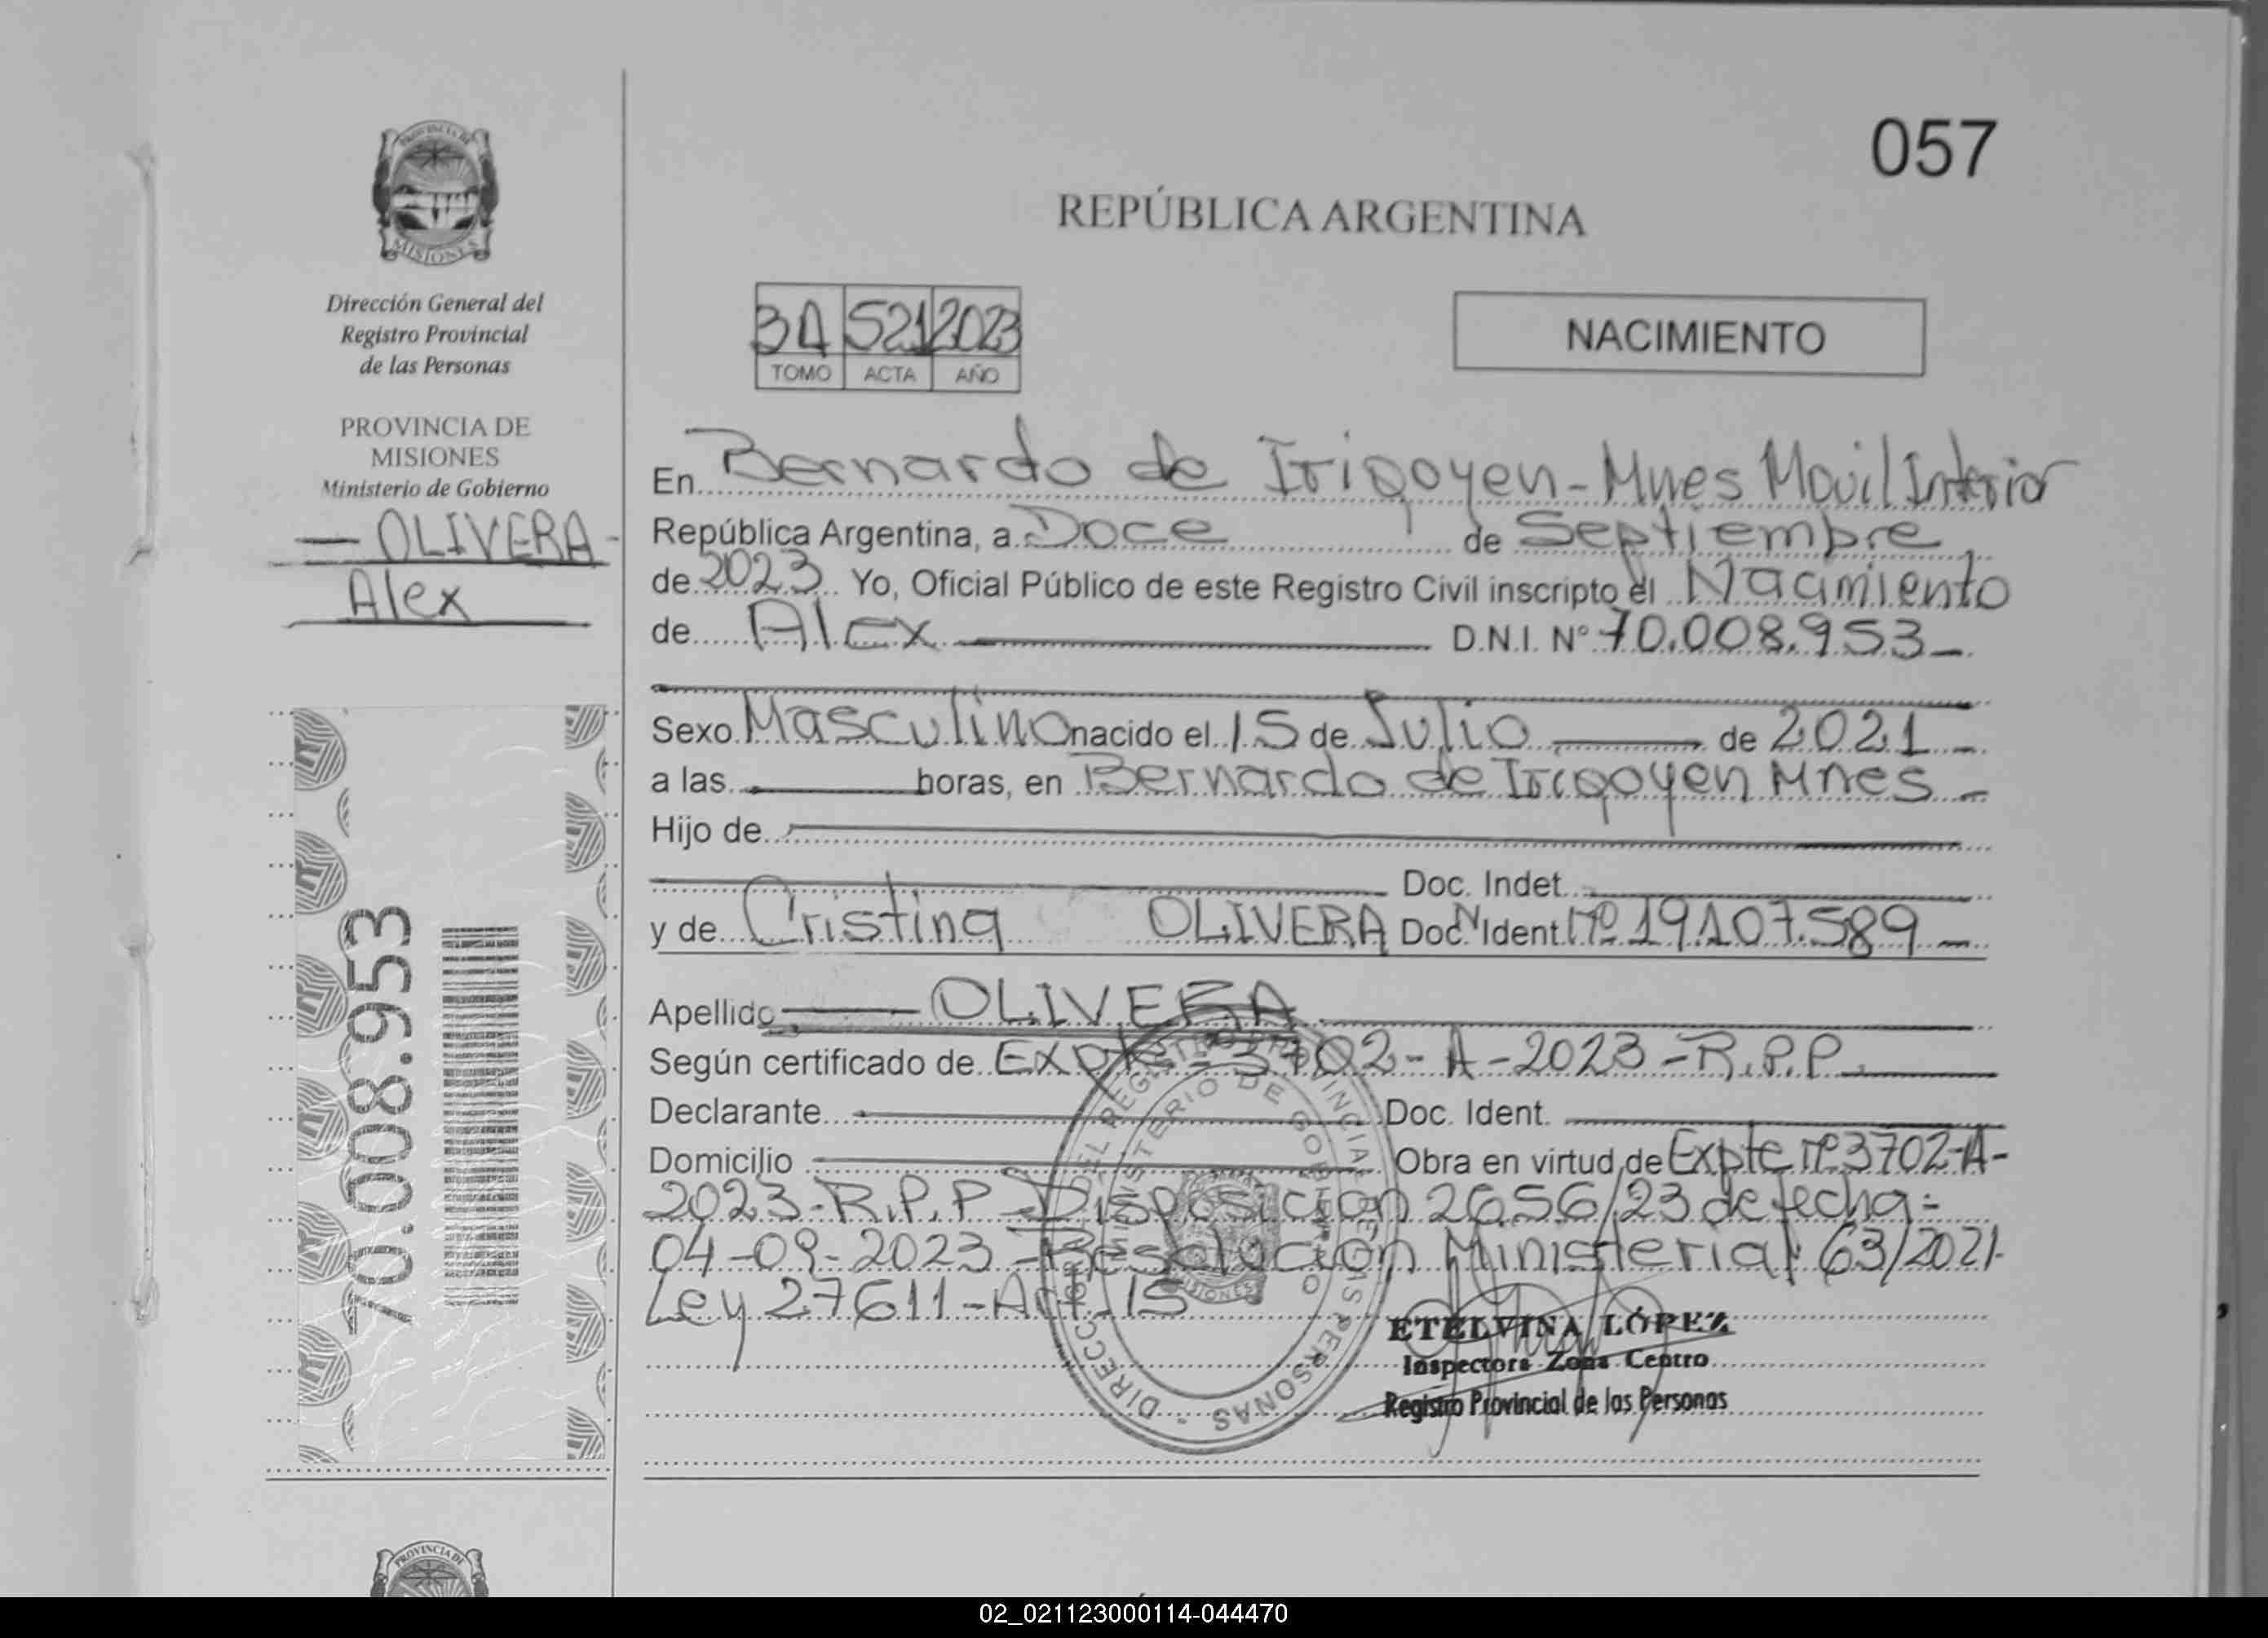 PROVINCIA DE
MISIONES
Dirección General del
Registro Provincial
de las Personas
PROVINCIA DE
MISIONES
Ministerio de Gobierno
— OLIVERA -
Alex
70.008.953
057
REPÚBLICA ARGENTINA
3A 521 2023
TOMO ACTA AÑO
NACIMIENTO
En Bernardo de Irigoyen - Mnes Movil Interior
República Argentina, a Doce de Septiembre
de 2023 Yo, Oficial Público de este Registro Civil inscripto el Nacimiento
de Alex D.N.I. N° 70.008.953 -
Sexo Masculino nacido el 15 de Julio de 2021 -
a las horas, en Bernardo de Irigoyen Mnes -
Hijo de
Doc. Indet.
y de Cristina OLIVERA Doc. Ident. Nº 19.107.589 -
Apellido OLIVERA
Según certificado de Expte - 3702 - A - 2023 - R.P.P.
Declarante Doc. Ident.
Domicilio Obra en virtud de Expte nº 3702-A-
2023-R.P.P - Disposicion 2656/23 de fecha -
04-09-2023 - Resolucion Ministerial 63/2021-
Ley 27611 - Art. 15
ETELVINA LÓPEZ
Inspectora Zona Centro
Registro Provincial de las Personas
MINISTERIO DE GOBIERNO
MISIONES
PROVINCIA DE
02_021123000114-044470